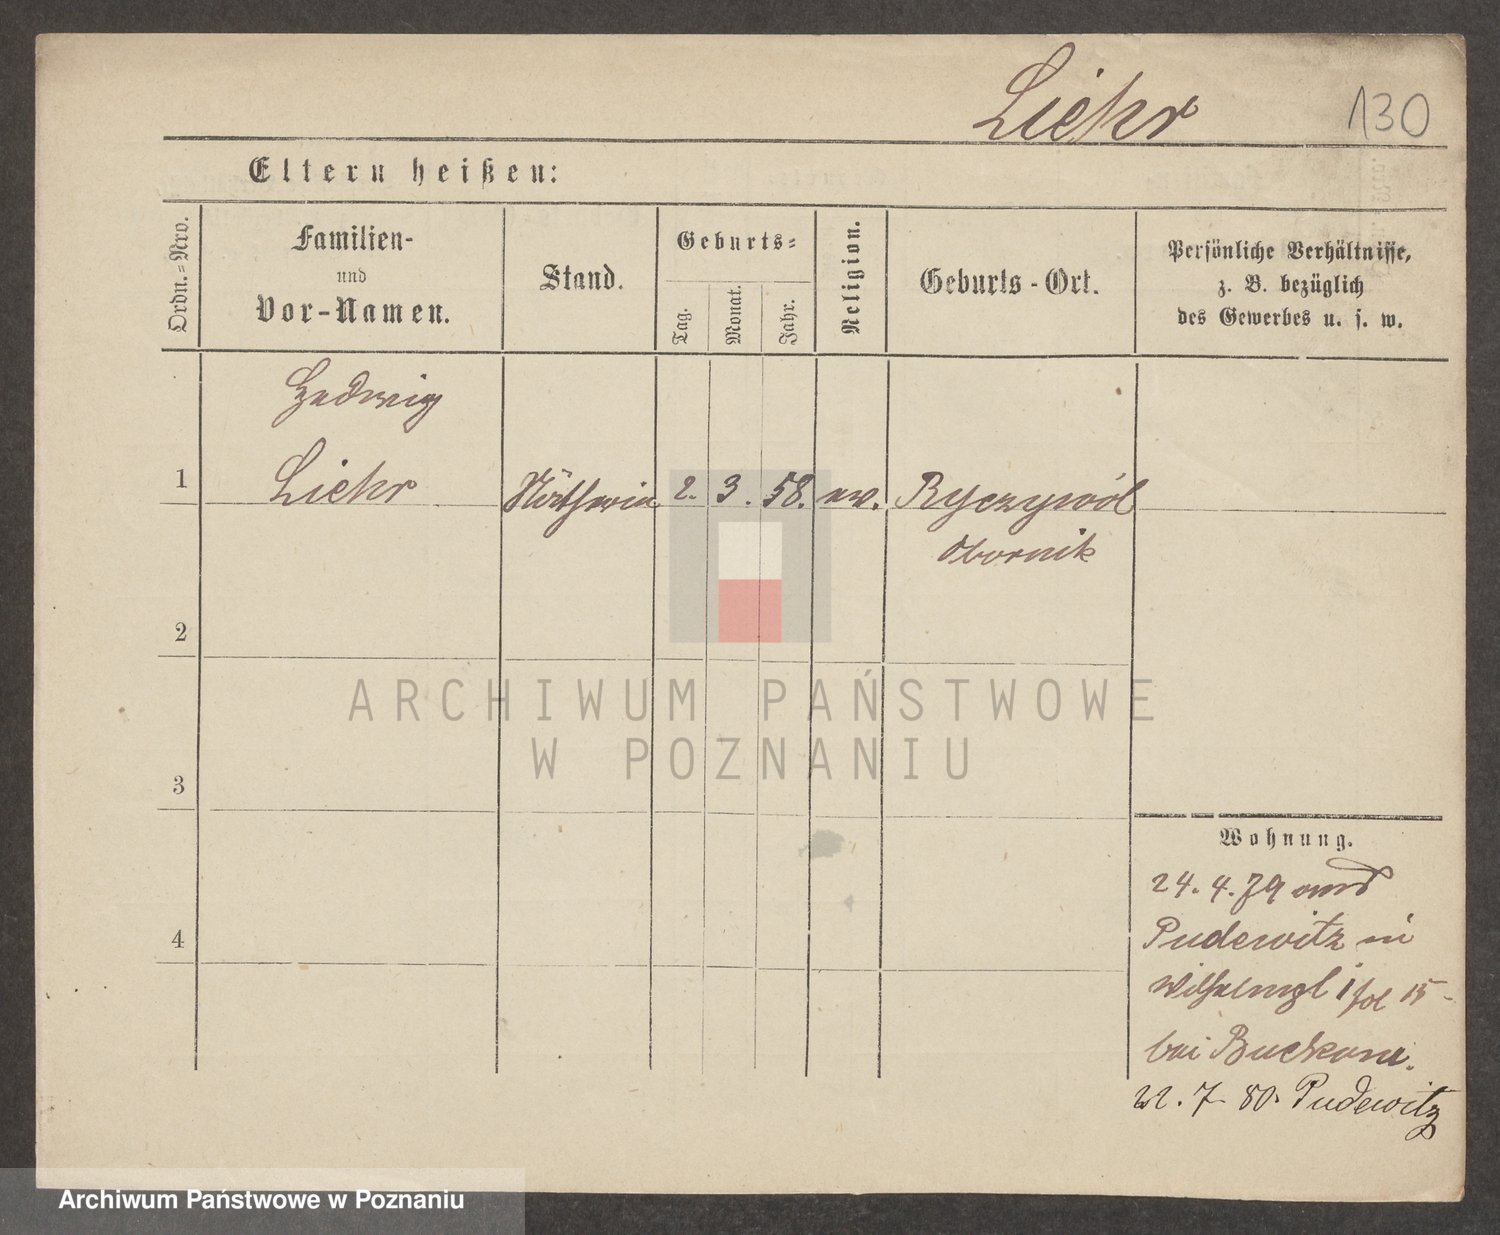 Liehr 130
Eltern heißen:
Ordn.=Nro.
Familien-
und
Vor-Namen.
Stand.
Geburts=
Tag.
Monat.
Jahr.
Religion.
Geburts-Ort.
Persönliche Verhältnisse,
z. B. bezüglich
des Gewerbes u. s. w.
Hedwig
1 Liehr Nätherin 2. 3. 58. ev. Ryczywół
Obornik
2
3
4
ARCHIWUM PAŃSTWOWE
W POZNANIU
Wohnung.
24. 4. 79 aus
Pudewitz in
Wilhelmpl 15
bei Buckow.
22. 7. 80. Pudewitz
Archiwum Państwowe w Poznaniu